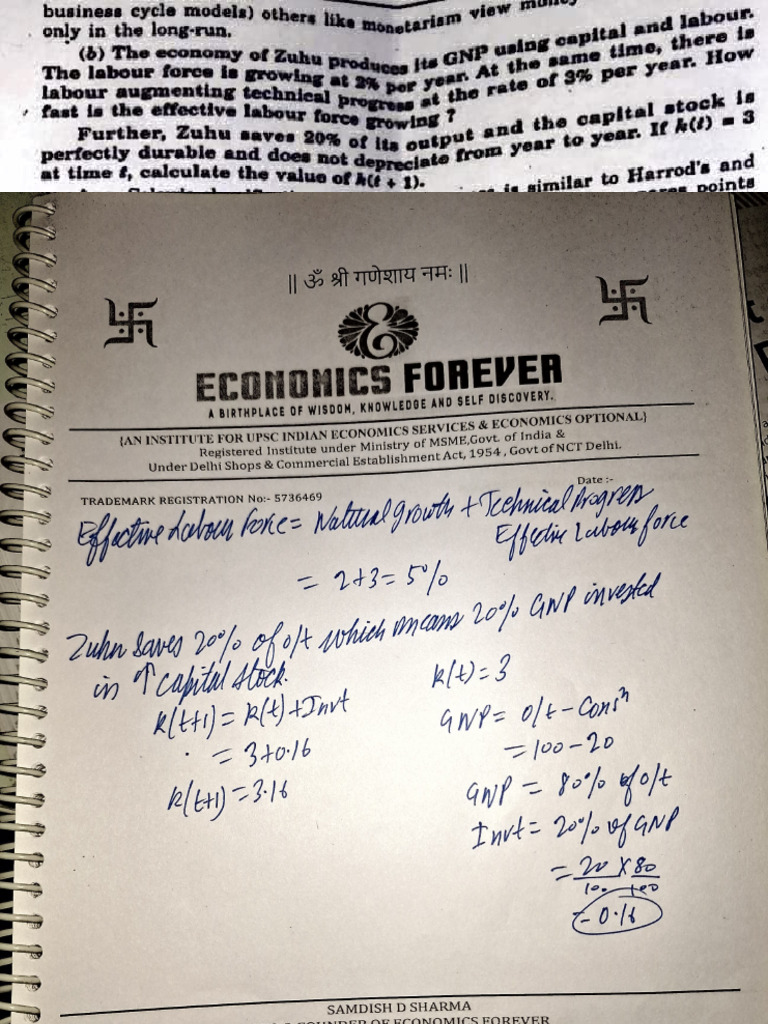 business cycle models) others like monetarism view money
only in the long-run.
(b) The economy of Zuhu produces its GNP using capital and labour.
The labour force is growing at 2% per year. At the same time, there is
labour augmenting technical progress at the rate of 3% per year. How
fast is the effective labour force growing ?
Further, Zuhu saves 20% of its output and the capital stock is
perfectly durable and does not depreciate from year to year. If k(t) = 3
at time t, calculate the value of k(t + 1).
is similar to Harrod's and
points
|| ॐ श्री गणेशाय नमः ||
ECONOMICS FOREVER
A BIRTHPLACE OF WISDOM, KNOWLEDGE AND SELF DISCOVERY.
{AN INSTITUTE FOR UPSC INDIAN ECONOMICS SERVICES & ECONOMICS OPTIONAL}
Registered Institute under Ministry of MSME,Govt. of India &
Under Delhi Shops & Commercial Establishment Act, 1954 , Govt of NCT Delhi.
Date :-
TRADEMARK REGISTRATION No:- 5736469
Effective Labour Force = Natural growth + Technical Progress
Effective Labour force
= 2+3 = 5%
Zuhu saves 20% of o/t which means 20% GNP invested
in ↑ capital stock.
k(t+1) = k(t) + Invt
= 3+0.16
k(t+1) = 3.16
k(t) = 3
GNP = o/t - Consⁿ
= 100 - 20
GNP = 80% of o/t
Invt = 20% of GNP
= 20/100 × 80/100
= 0.16
SAMDISH D SHARMA
FOUNDER OF ECONOMICS FOREVER